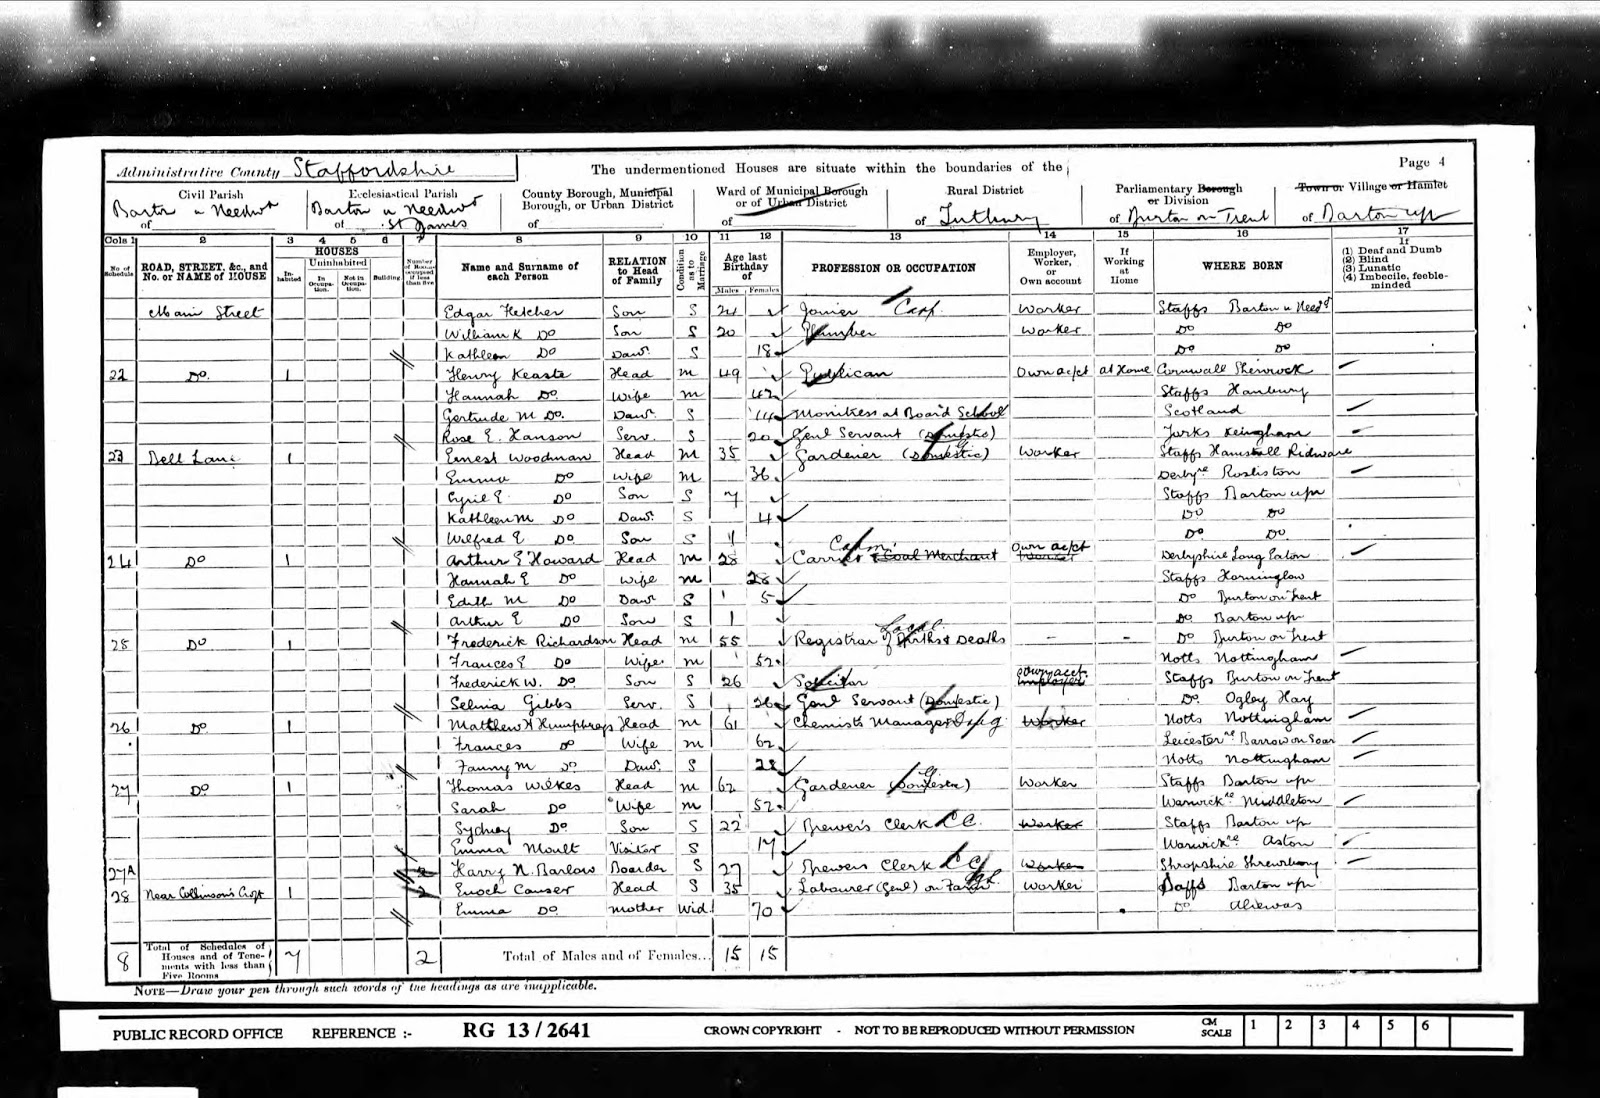 Administrative County Staffordshire The undermentioned Houses are situate within the boundaries of the Page 4
Civil Parish Ecclesiastical Parish County Borough, Municipal Borough, or Urban District Ward of Municipal Borough or of Urban District Rural District Parliamentary Borough or Division Town or Village or Hamlet
of Barton u Needwd of Barton u Needwd St James of of of Tutbury of Burton on Trent of Barton u/n
Cols 1 2 3 4 5 6 7 8 9 10 11 12 13 14 15 16 17
No of Schedule ROAD, STREET, &c., and No. or NAME of HOUSE HOUSES Inhabited Uninhabited In Occupation. Not in Occupation. Building. Number of Rooms occupied if less than five Name and Surname of each Person RELATION to Head of Family Condition as to Marriage Age last Birthday of Males Females PROFESSION OR OCCUPATION Employer, Worker, or Own account If Working at Home WHERE BORN If (1) Deaf and Dumb (2) Blind (3) Lunatic (4) Imbecile, feeble-minded
Main Street Edgar Fletcher Son S Joiner Carp. Worker Staffs Barton u Needd
William K Do Son S 20 Plumber Worker Do Do
Kathleen Do Daur S 18 Do Do
22 Do. 1 Henry Keaste Head M 49 Publican Own acpt at Home Cornwall
Hannah Do. Wife M 42 Staffs Hanbury
Gertrude M Do. Daur. S 14 Monitress at Board School Scotland
Rose E. Hanson Serv. S 20 Genl Servant (Domestic) Yorks Keingham
23 Bell Lane 1 Ernest Woodman Head M 35 Gardener (Domestic) Worker Staffs Hamstall Ridware
Emma Do Wife M 36 Derbyre Rosliston
Cyril E. Do Son S 7 Staffs Barton u/n
Kathleen M Do Daur. S 4 Do Do
Wilfred E Do Son S 1 Do Do
24 Do 1 Arthur E Howard Head M 28 Carrier & Coal Merchant Own acpt Worker Derbyshire Long Eaton
Hannah E Do Wife M 28 Staffs Horninglow
Edith M Do Daur S 5 Do Burton on Trent
Arthur E Do Son S 1 Do Barton u/n
25 Do 1 Frederick Richardson Head M 55 Registrar of Births & Deaths Local - - Do Burton on Trent
Frances E Do Wife M 52 Notts Nottingham
Frederick W. Do Son S 26 Solicitor Own acct. Employer Staffs Burton on Trent
Selina Gibbs Serv. S 26 Genl Servant (Domestic) Do. Ogley Hay
26 Do 1 Matthew H Humphreys Head M 61 Chemists Manager Worker Notts Nottingham
Frances Do Wife M 62 Leicesterre Barrow on Soar
Fanny M Do Daur. S 28 Notts Nottingham
27 Do 1 Thomas Wilkes Head M 62 Gardener (Domestic) Worker Staffs Barton u/n
Sarah Do Wife M 52 Warwickre Middleton
Sydney Do Son S 22 Brewer's Clerk C C. Worker Staffs Barton u/n
Emma Moult Visitor S 17 Warwickre Aston
27A 2 Harry N. Barlow Boarder S 27 Brewers Clerk C C Worker Shropshire Shrewsbury
28 Near Collinson's Croft 1 2 Enoch Causer Head S 35 Labourer (Genl) on Farm Worker Staffs Barton u/n
Emma Do. Mother Wid. 70 Do Alrewas
8 Total of Schedules of Houses and of Tenements with less than Five Rooms 7 2 Total of Males and of Females... 15 15
NOTE—Draw your pen through such words of the headings as are inapplicable.
PUBLIC RECORD OFFICE REFERENCE :- RG 13 / 2641 CROWN COPYRIGHT - NOT TO BE REPRODUCED WITHOUT PERMISSION CM SCALE 1 2 3 4 5 6